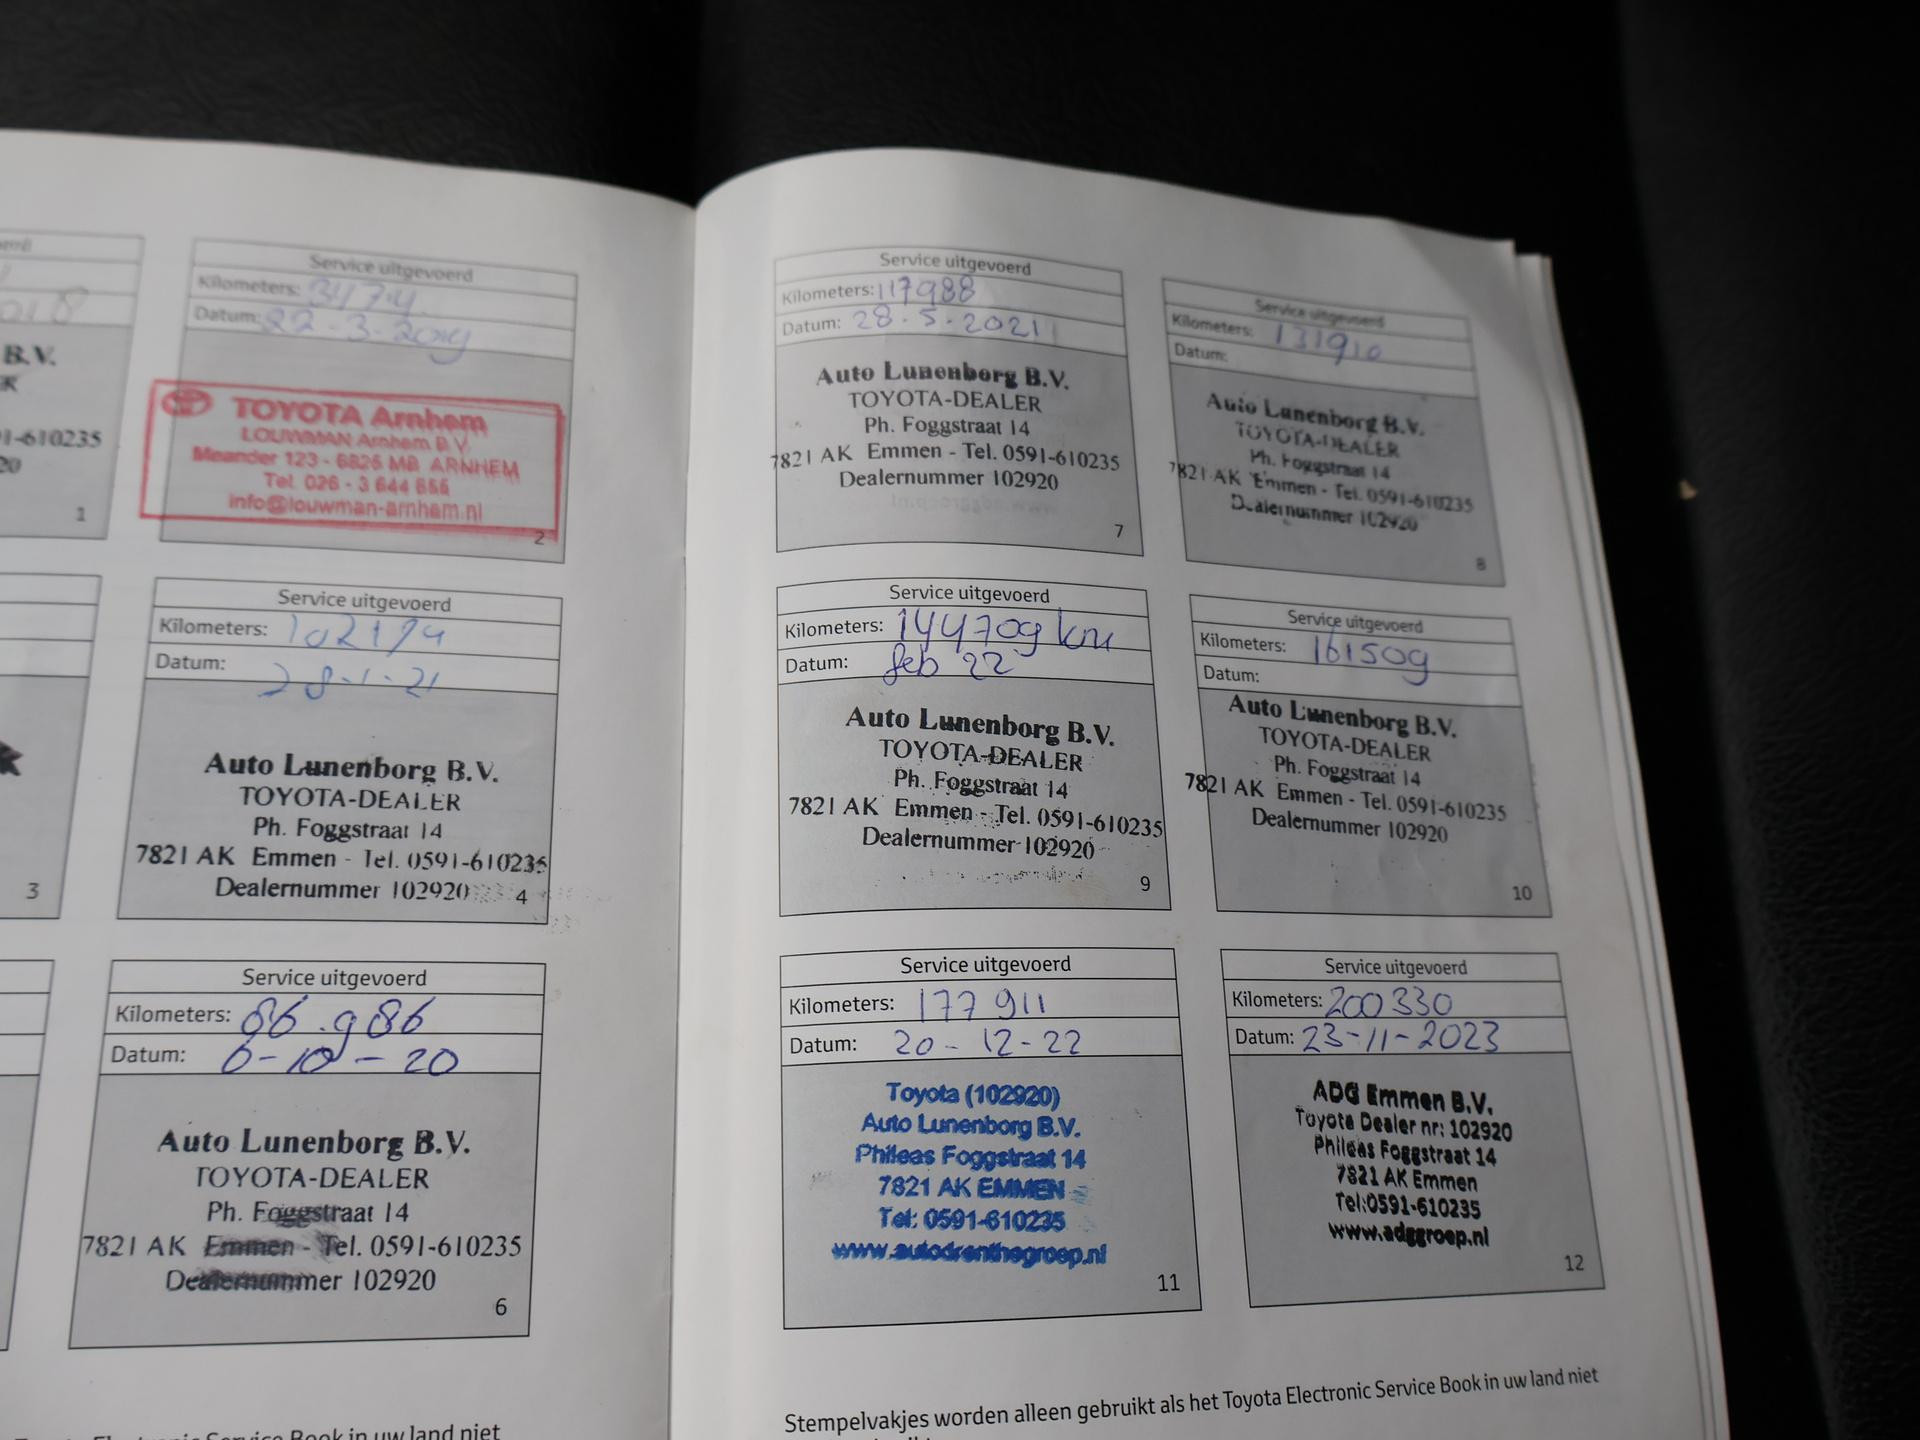 B.V.
1-610235
20
1
Service uitgevoerd
Kilometers:
Datum: 22-3-2019
TOYOTA Arnhem
LOUWMAN Arnhem B.V.
Meander 123 - 6825 MB ARNHEM
Tel. 026 - 3 644 655
info@louwman-arnhem.nl
2
3
Service uitgevoerd
Kilometers: 102194
Datum: 28-1-21
Auto Lunenborg B.V.
TOYOTA-DEALER
Ph. Foggstraat 14
7821 AK Emmen - Tel. 0591-610235
Dealernummer 102920
4
Service uitgevoerd
Kilometers: 86.986
Datum: 6-10-20
Auto Lunenborg B.V.
TOYOTA-DEALER
Ph. Foggstraat 14
7821 AK Emmen - Tel. 0591-610235
Dealernummer 102920
6
Electronic Service Book in uw land niet
Service uitgevoerd
Kilometers: 117988
Datum: 28.5.2021
Auto Lunenborg B.V.
TOYOTA-DEALER
Ph. Foggstraat 14
7821 AK Emmen - Tel. 0591-610235
Dealernummer 102920
7
Service uitgevoerd
Kilometers: 131910
Datum:
Auto Lunenborg B.V.
TOYOTA-DEALER
Ph. Foggstraat 14
7821 AK Emmen - Tel. 0591-610235
Dealernummer 102920
8
Service uitgevoerd
Kilometers: 144709 km
Datum: feb 22
Auto Lunenborg B.V.
TOYOTA-DEALER
Ph. Foggstraat 14
7821 AK Emmen - Tel. 0591-610235
Dealernummer 102920
9
Service uitgevoerd
Kilometers: 161509
Datum:
Auto Lunenborg B.V.
TOYOTA-DEALER
Ph. Foggstraat 14
7821 AK Emmen - Tel. 0591-610235
Dealernummer 102920
10
Service uitgevoerd
Kilometers: 177911
Datum: 20-12-22
Toyota (102920)
Auto Lunenborg B.V.
Phileas Foggstraat 14
7821 AK EMMEN
Tel: 0591-610235
www.autodrenthegroep.nl
11
Service uitgevoerd
Kilometers: 200330
Datum: 23-11-2023
ADG Emmen B.V.
Toyota Dealer nr: 102920
Phileas Foggstraat 14
7821 AK Emmen
Tel:0591-610235
www.adggroep.nl
12
Stempelvakjes worden alleen gebruikt als het Toyota Electronic Service Book in uw land niet